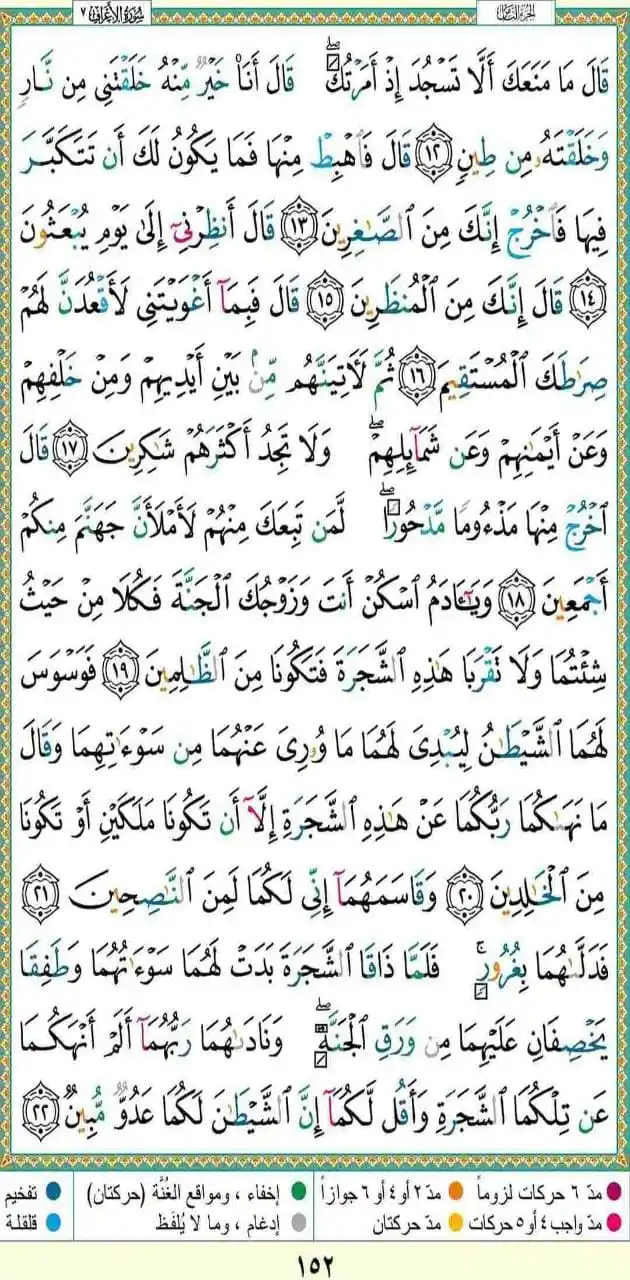 الجزء الثامن
سُورَةُ الأَعْرَافِ ٧
قَالَ مَا مَنَعَكَ أَلَّا تَسْجُدَ إِذْ أَمَرْتُكَۖ قَالَ أَنَا۠ خَيْرٌ مِّنْهُ خَلَقْتَنِى مِن نَّارٍ
وَخَلَقْتَهُۥ مِن طِينٍ ١٢ قَالَ فَٱهْبِطْ مِنْهَا فَمَا يَكُونُ لَكَ أَن تَتَكَبَّرَ
فِيهَا فَٱخْرُجْ إِنَّكَ مِنَ ٱلصَّٰغِرِينَ ١٣ قَالَ أَنظِرْنِىٓ إِلَىٰ يَوْمِ يُبْعَثُونَ
١٤ قَالَ إِنَّكَ مِنَ ٱلْمُنظَرِينَ ١٥ قَالَ فَبِمَآ أَغْوَيْتَنِى لَأَقْعُدَنَّ لَهُمْ
صِرَٰطَكَ ٱلْمُسْتَقِيمَ ١٦ ثُمَّ لَءَاتِيَنَّهُم مِّنۢ بَيْنِ أَيْدِيهِمْ وَمِنْ خَلْفِهِمْ
وَعَنْ أَيْمَٰنِهِمْ وَعَن شَمَآئِلِهِمْۖ وَلَا تَجِدُ أَكْثَرَهُمْ شَٰكِرِينَ ١٧ قَالَ
ٱخْرُجْ مِنْهَا مَذْءُومًا مَّدْحُورًاۖ لَّمَن تَبِعَكَ مِنْهُمْ لَأَمْلَأَنَّ جَهَنَّمَ مِنكُمْ
أَجْمَعِينَ ١٨ وَيَٰٓـَٔادَمُ ٱسْكُنْ أَنتَ وَزَوْجُكَ ٱلْجَنَّةَ فَكُلَا مِنْ حَيْثُ
شِئْتُمَا وَلَا تَقْرَبَا هَٰذِهِ ٱلشَّجَرَةَ فَتَكُونَا مِنَ ٱلظَّٰلِمِينَ ١٩ فَوَسْوَسَ
لَهُمَا ٱلشَّيْطَٰنُ لِيُبْدِىَ لَهُمَا مَا وُۥرِىَ عَنْهُمَا مِن سَوْءَٰتِهِمَا وَقَالَ
مَا نَهَىٰكُمَا رَبُّكُمَا عَنْ هَٰذِهِ ٱلشَّجَرَةِ إِلَّآ أَن تَكُونَا مَلَكَيْنِ أَوْ تَكُونَا
مِنَ ٱلْخَٰلِدِينَ ٢٠ وَقَاسَمَهُمَآ إِنِّى لَكُمَا لَمِنَ ٱلنَّٰصِحِينَ ٢١
فَدَلَّىٰهُمَا بِغُرُورٍۚ فَلَمَّا ذَاقَا ٱلشَّجَرَةَ بَدَتْ لَهُمَا سَوْءَٰتُهُمَا وَطَفِقَا
يَخْصِفَانِ عَلَيْهِمَا مِن وَرَقِ ٱلْجَنَّةِۖ وَنَادَىٰهُمَا رَبُّهُمَآ أَلَمْ أَنْهَكُمَا
عَن تِلْكُمَا ٱلشَّجَرَةِ وَأَقُل لَّكُمَآ إِنَّ ٱلشَّيْطَٰنَ لَكُمَا عَدُوٌّ مُّبِينٌ ٢٢
مدّ ٦ حركات لزوماً مدّ ٢ أو ٤ أو ٦ جوازاً إخفاء ، ومواقع الغُنَّة (حركتان) تفخيم
مدّ واجب ٤ أو ٥ حركات مدّ حركتان إدغام ، وما لا يُلفَظ قلقلة
١٥٢